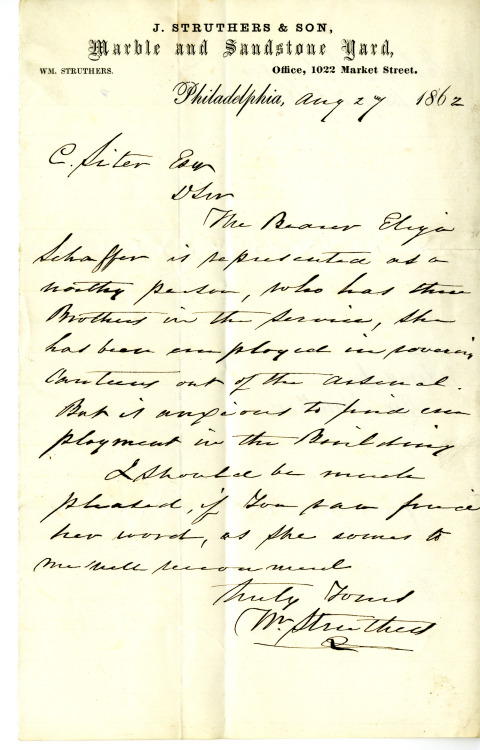 J. STRUTHERS & SON,
Marble and Sandstone Yard,
WM. STRUTHERS. Office, 1022 Market Street.
Philadelphia, Aug 27 1862
C. Siter Esq
D Sir
The Bearer Eliza
Schaffer is represented as a
worthy person, who has three
Brothers in the service, she
has been employed in covering
Canteens out of the Arsenal.
But is anxious to find em
ployment in the Building
I should be much
pleased, if You can find
her word, as she comes to
me well recommend
truly Yours
Wm Struthers